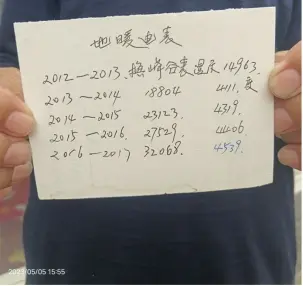 地暖电表
2012—2013. 换峰谷表退床 14963.
2013—2014 18804 4411. 度
2014—2015 23123. 4319.
2015—2016. 27529. 4406
2016—2017 32068. 4539.
2023/05/05 15:55